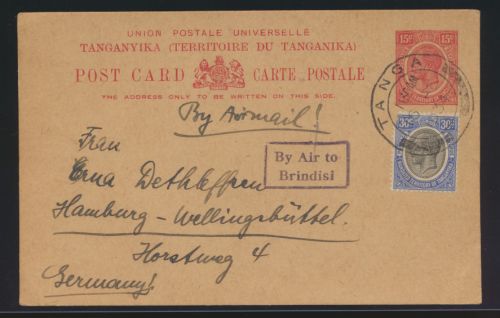 UNION POSTALE UNIVERSELLE
TANGANYIKA (TERRITOIRE DU TANGANIKA)
POST CARD CARTE POSTALE
THE ADDRESS ONLY TO BE WRITTEN ON THIS SIDE.
15c 15c
TANGA
30c 30c
By Airmail!
By Air to
Brindisi
Frau
Erna Dethleffsen
Hamburg-Wellingsbüttel.
Horstweg 4
Germany!